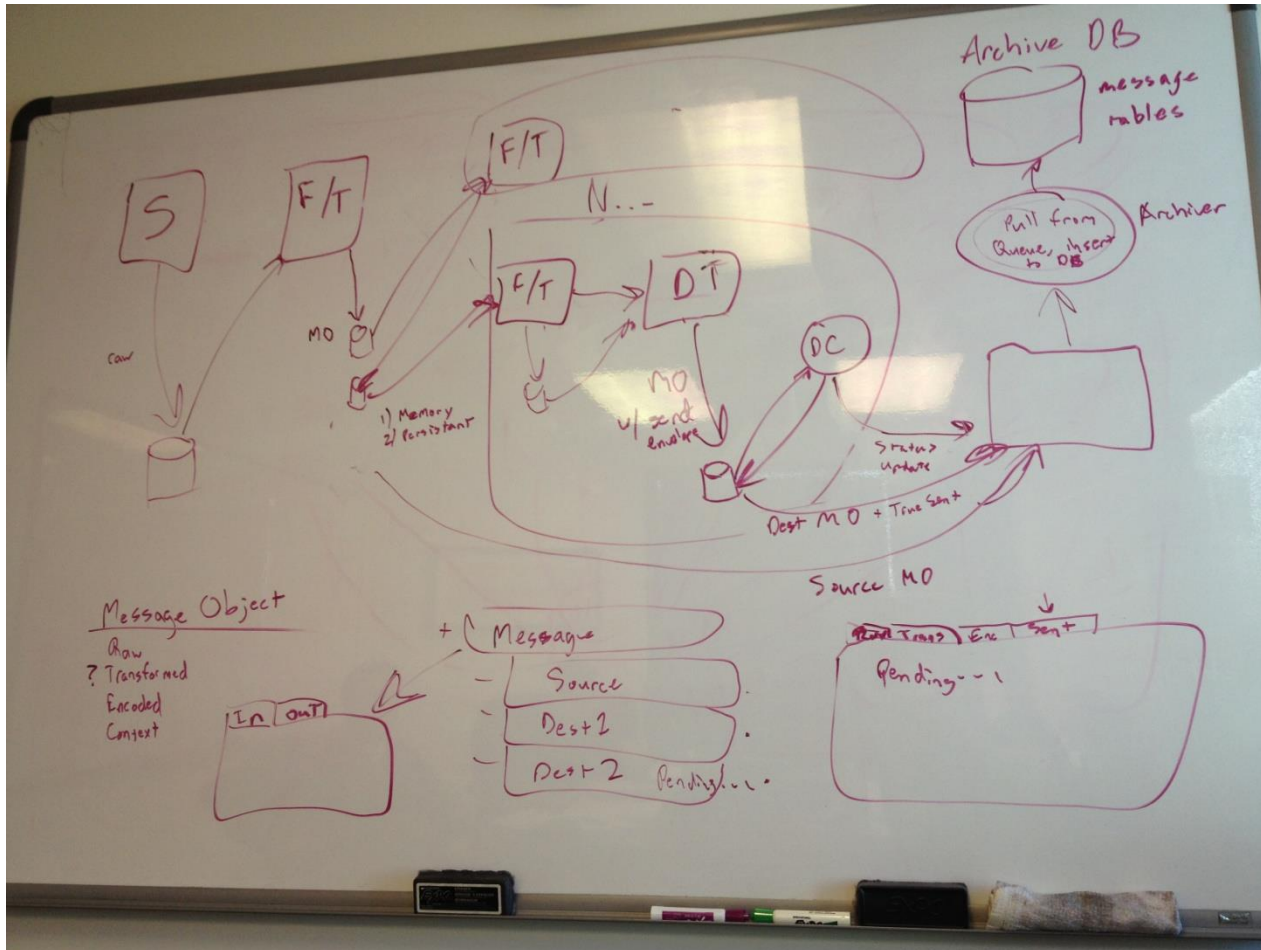 Archive DB
message
tables
F/T
S
F/T
N...
Pull from
Queue, insert
to DB
Archiver
F/T
DT
MO
raw
DC
1) Memory
2) Persistant
MO
w/ send
envelope
Status
update
Dest MO + True Sent
Source MO
Message Object
Raw
? Transformed
Encoded
Context
In
out
+
Message
- Source
- Dest 1
- Dest 2 Pending...
Trans
Enc
Sent
Pending...